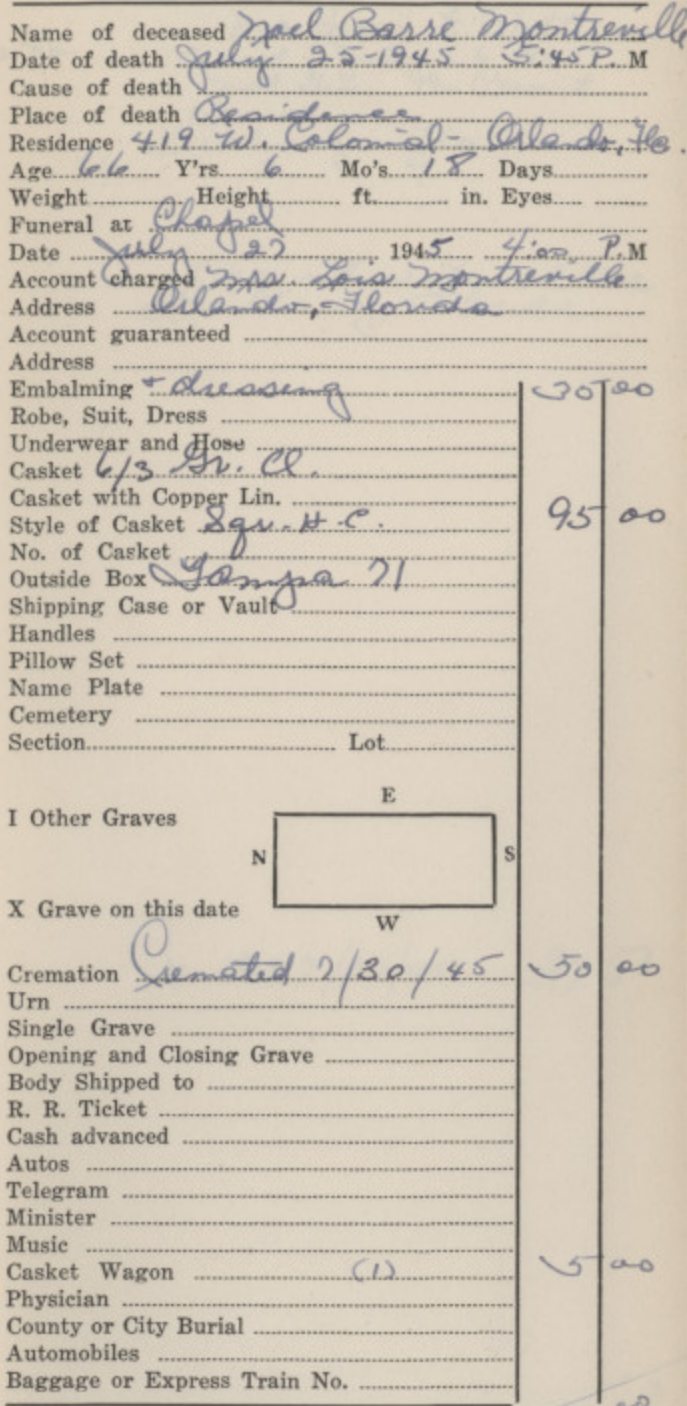 Name of deceased Noel Barre Montreville
Date of death July 25-1945 5:45 P. M
Cause of death
Place of death Residence
Residence 419 W. Colonial - Orlando, Fla.
Age 66 Y'rs. 6 Mo's. 18 Days
Weight Height ft. in. Eyes
Funeral at Chapel
Date July 27 1945 4:00 P. M
Account charged Mrs. Lois Montreville
Address Orlando, Florida
Account guaranteed
Address
Embalming + dressing 30 00
Robe, Suit, Dress
Underwear and Hose
Casket 6/3 Gr. Cl.
Casket with Copper Lin.
Style of Casket Sqr. H. C. 95 00
No. of Casket
Outside Box Tampa 71
Shipping Case or Vault
Handles
Pillow Set
Name Plate
Cemetery
Section Lot
E
I Other Graves
N S
X Grave on this date
W
Cremation Cremated 7/30/45 50 00
Urn
Single Grave
Opening and Closing Grave
Body Shipped to
R. R. Ticket
Cash advanced
Autos
Telegram
Minister
Music
Casket Wagon (1) 5 00
Physician
County or City Burial
Automobiles
Baggage or Express Train No.